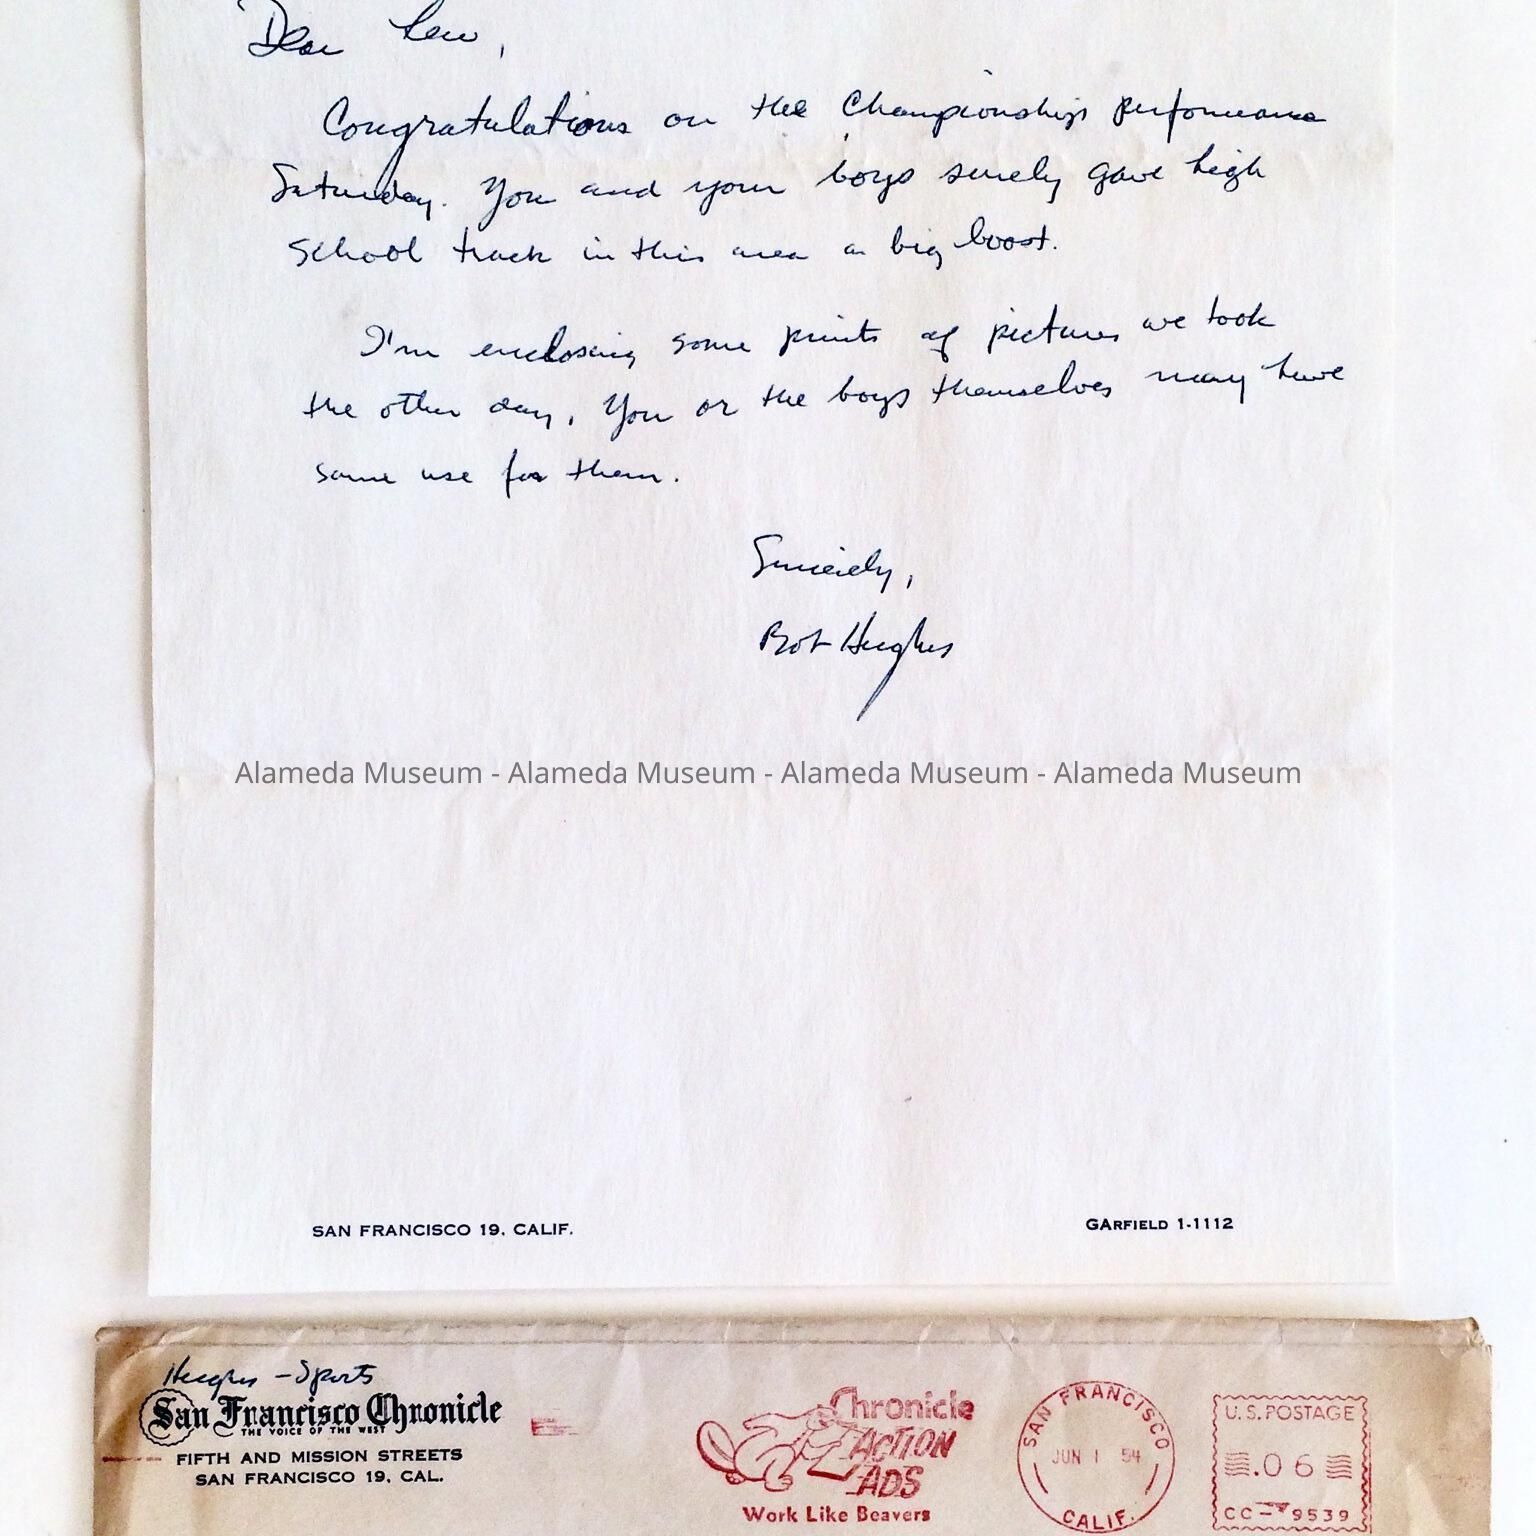 Dear Lew,
Congratulations on the Championship performance
Saturday. You and your boys surely gave high
school track in this area a big boost.
I'm enclosing some prints of pictures we took
the other day. You or the boys themselves may have
some use for them.
Sincerely,
Bob Hughes
Alameda Museum - Alameda Museum - Alameda Museum - Alameda Museum
SAN FRANCISCO 19, CALIF.
GARFIELD 1-1112
Hughes - Sports
San Francisco Chronicle
THE VOICE OF THE WEST
FIFTH AND MISSION STREETS
SAN FRANCISCO 19, CAL.
Chronicle
ACTION
ADS
Work Like Beavers
SAN FRANCISCO
JUN 1 54
CALIF.
U.S. POSTAGE
.06
CC- 9539